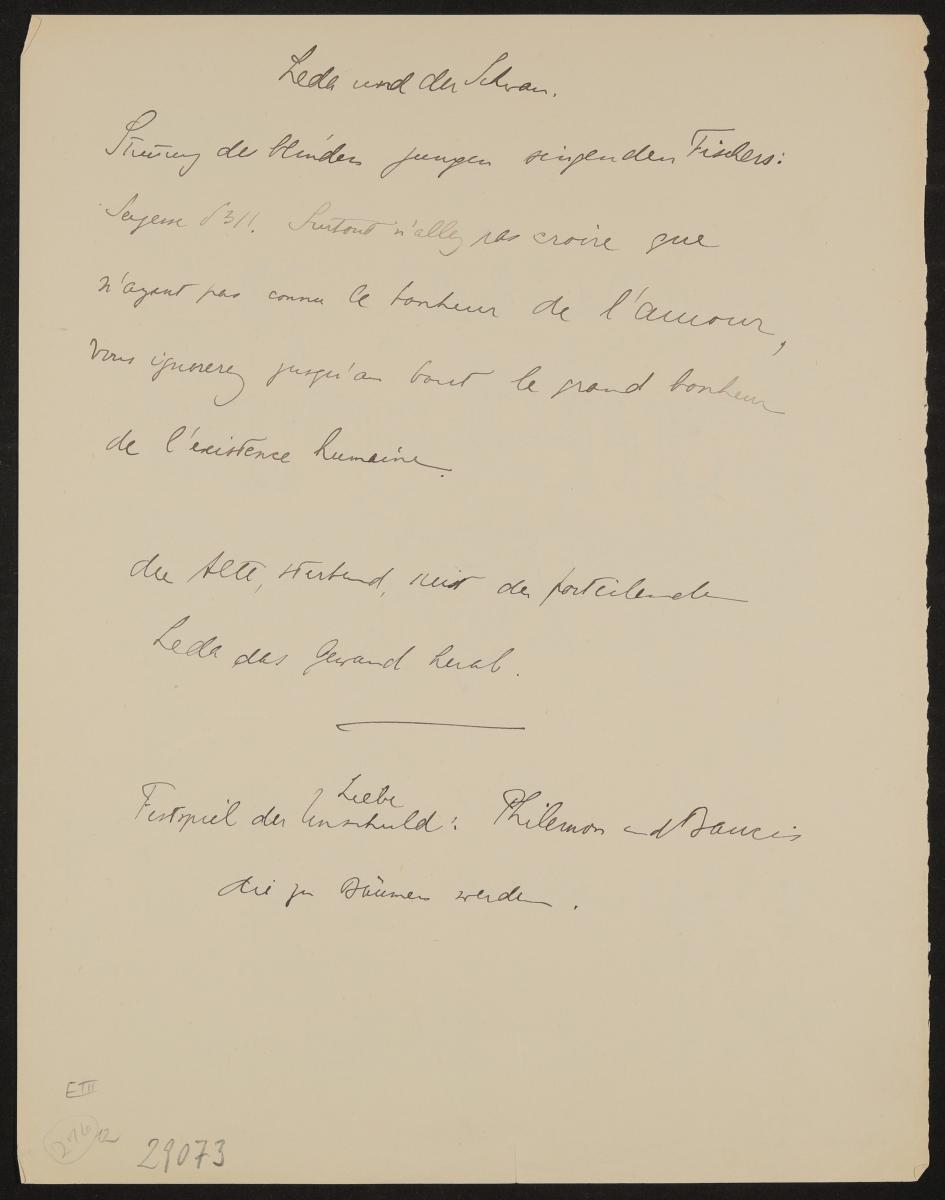 Leda und der Schwan.
Stimmung des blinden jungen singenden Fischers:
Sagesse Surtout n'allez pas croire que
n'ayant pas connu le bonheur de l'amour,
vous ignorerez jusqu'au bout le grand bonheur
de l'existence humaine.
der Alte, sterbend, reisst der forteilenden
Leda das Gewand herab.
Liebe
Festspiel der Unschuld: Philemon und Baucis
die zu Bäumen werden.
E III
276
12
29073